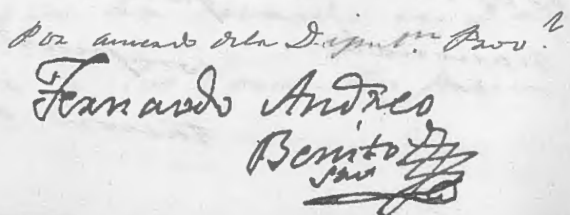 Por acuerdo dela Diput.ᵒⁿ Prov.ˡ
Fernando Andreo
Benito